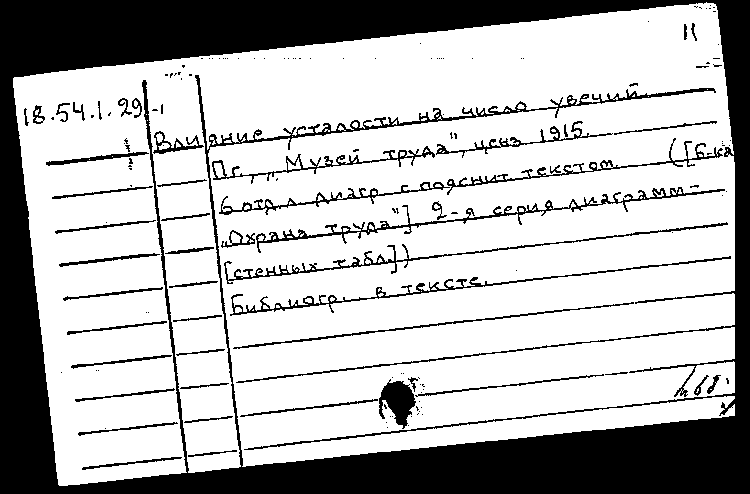 11
18.54.1.29
Влияние усталости на число увечий.
Пг., „Музей труда", ценз 1915.
6 отд. л. диагр. с пояснит. текстом. ([Б-ка
„Охрана труда"]. 2-я серия диаграмм-
[стенных табл.])
Библиогр. в тексте.